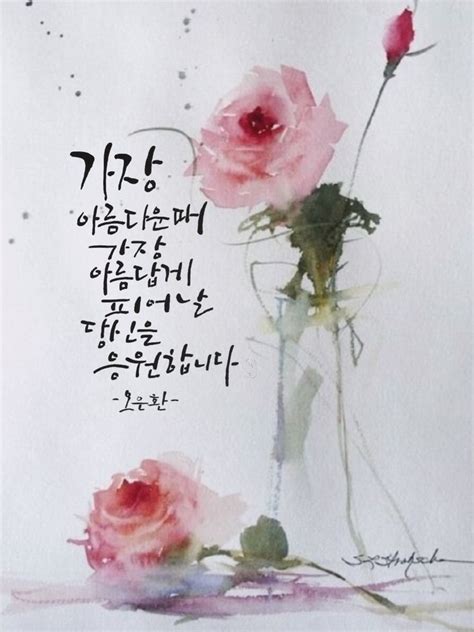 가장
아름다운때
가장
아름답게
피어날
당신을
응원합니다
-오은환-